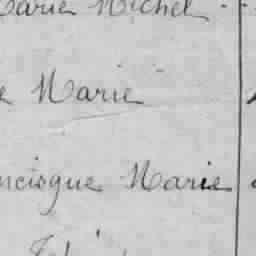 Marie Michel
Marie
ncisque Marie